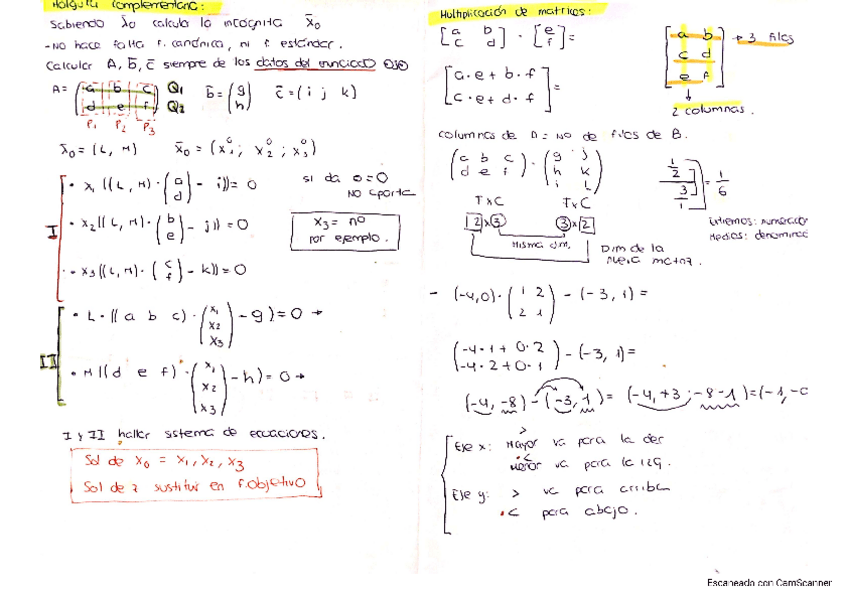 Holgura complementaria:
Sabiendo λ̄o calcula la incógnita x̄o
-No hace falta f. canónica, ni f. estándar.
Calcular A, b̄, c̄ siempre de los datos del enunciado OJO
A= (a b c) Q1 b̄= (g) c̄ = (i j k)
(d e f) Q2 (h)
P1 P2 P3
λ̄o = (L, M) x̄o = (x1°; x2°; x3°)
I
· x1 ((L, M) · (a d) - i) = 0 si da 0=0 no aporta
· x2 ((L, M) · (b e) - j) = 0
x3 = nº por ejemplo.
· x3 ((L, M) · (c f) - k) = 0
II
· L · ((a b c) · (x1 x2 x3) - g) = 0 →
· M ((d e f) · (x1 x2 x3) - h) = 0 →
I y II hallar sistema de ecuaciones.
Sol de x0 = x1, x2, x3
Sol de z sustituir en f. objetivo
Multiplicación de matrices:
[a b] · [e] =
[c d] [f]
[a·e + b·f] =
[c·e + d·f]
[a b] → 3 filas
[c d]
[e f]
↓
2 columnas.
Columnas de A = Nº de filas de B.
(a b c) · (g j)
(d e f) (h k)
(i L)
1/2 / 3/1 = 1/6
FxC FxC
2x3 3x2
misma dim.
Dim de la nueva matriz.
Extremos: numerador
Medios: denominad
- (-4,0) · (1 2) - (-3, 1) =
(2 1)
(-4·1 + 0·2) - (-3, 1) =
(-4·2 + 0·1)
(-4, -8) - (-3, 1) = (-4, +3 ; -8-1) = (-1, -
Eje x: > Mayor va para la der
< menor va para la izq.
Eje y: > va para arriba
< para abajo.
Escaneado con CamScanner